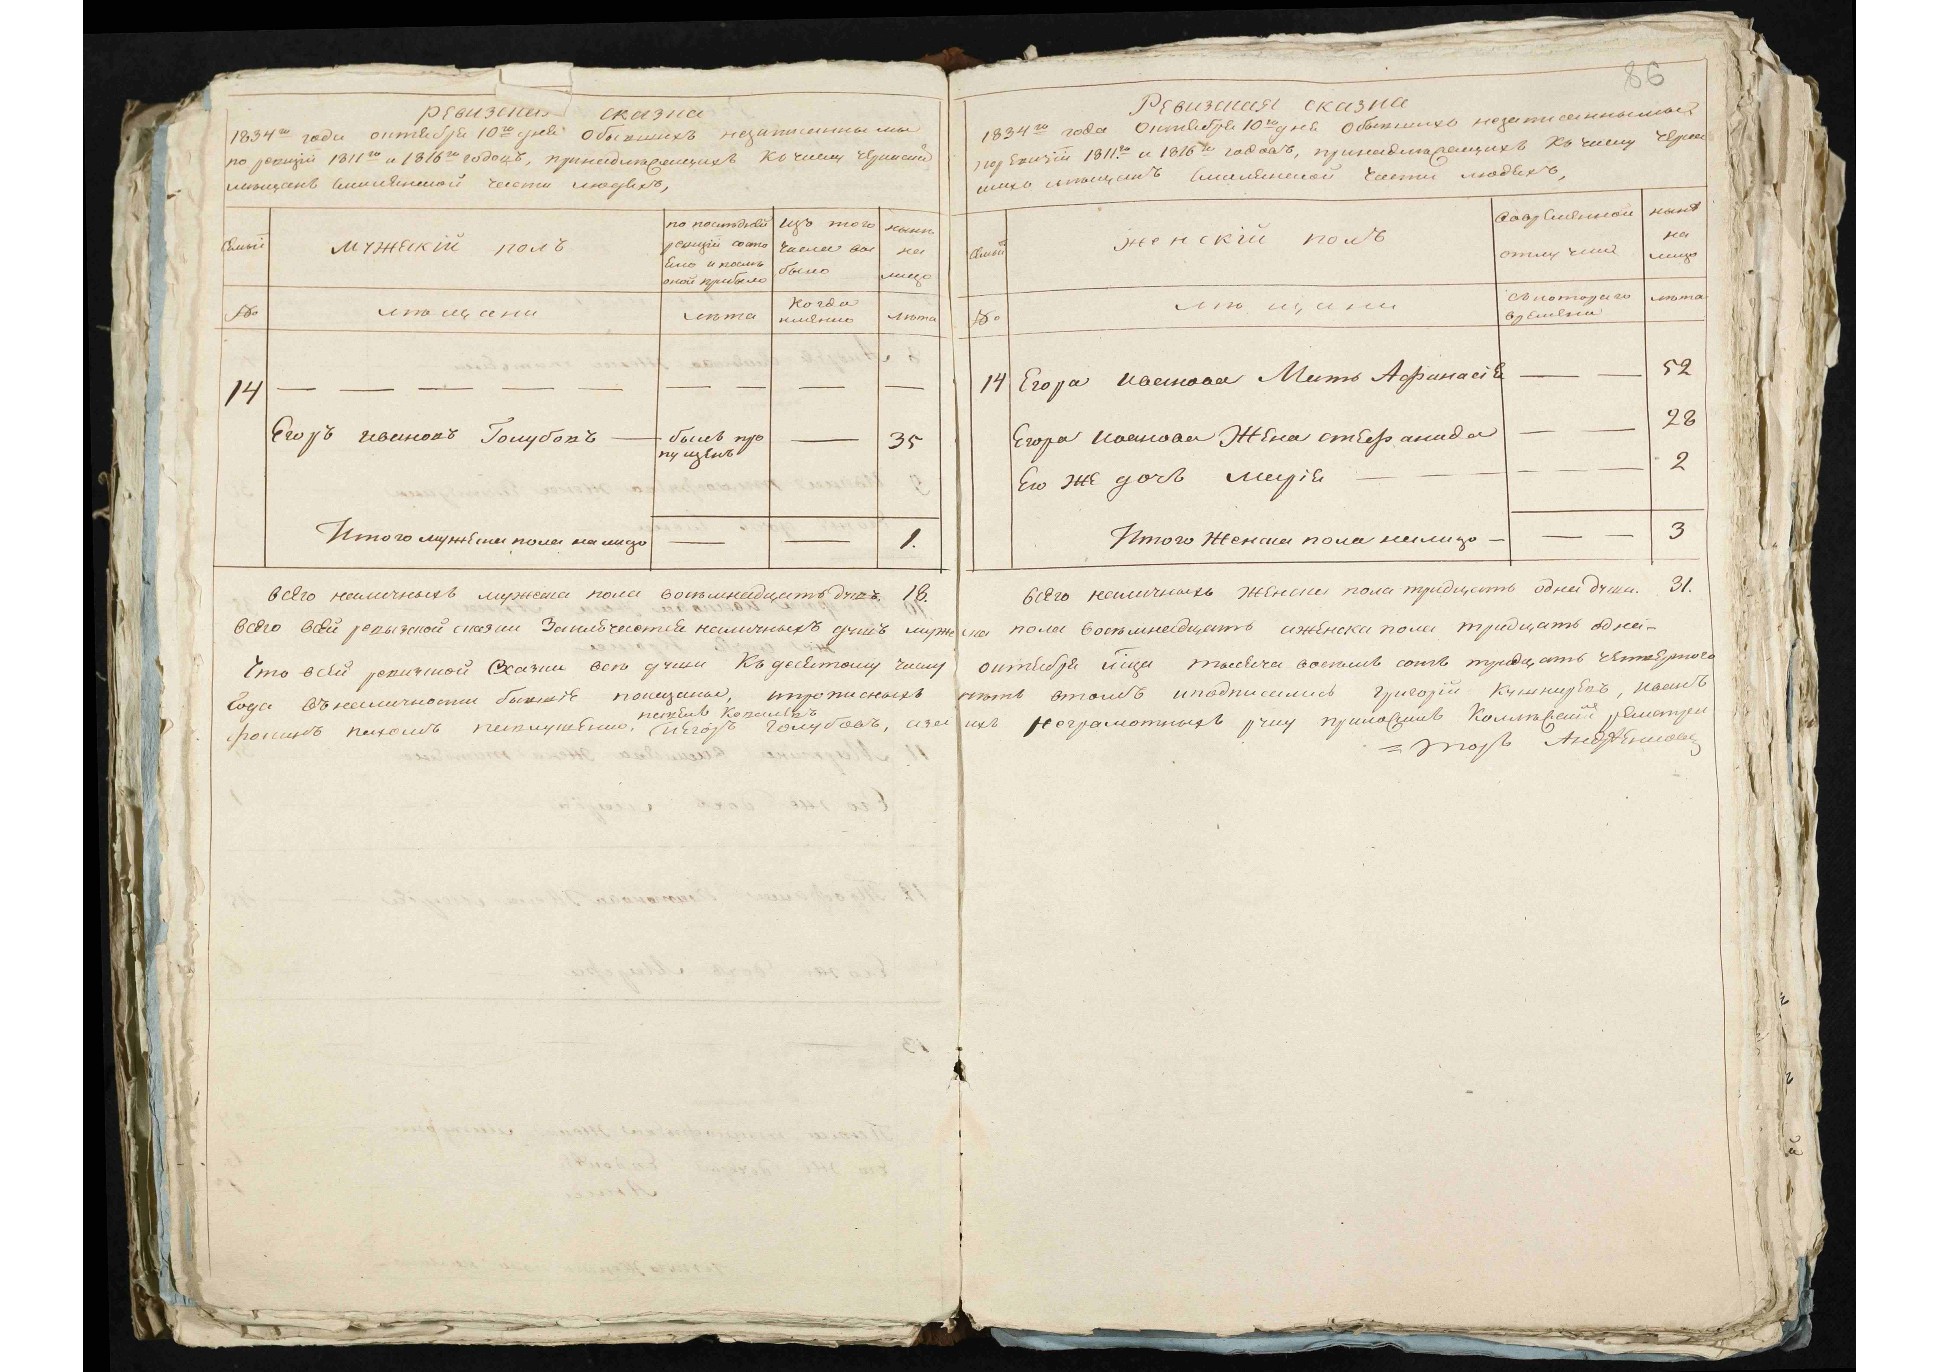 86
Ревизская сказка
1834го года октября 10го дня Обывшихъ незаписанными
по ревизiи 1811го и 1816го годовъ, принадлежащихъ Къ числу
мещанъ Смелянской части людехъ,
семьи
Мужескiй полъ
по последней ревизiи состояло и после оной прибыло
Изъ того числа выбыло
ныне на лицо
№
мещани
лета
Когда именно
лета
14 — — — — — —
Егоръ Ивановъ Голубовъ — былъ пропущенъ — 35
Итого мужеска пола на лицо — — 1.
Всего наличныхъ мужска пола восемнадцать душъ. 18.
Ревизская сказка
1834го года Октября 10го дня Обывшихъ незаписанными
по ревизiй 1811го и 1816го годовъ, принадлежащихъ Къ числу
мещанъ Смелянской части людехъ,
семьи
Женскiй полъ
Во временной отлучке
ныне на лицо
№
мещани
съ котораго времени
лета
14 Егора Иванова Мать Афанасiя — — 52
Егора Иванова Жена Стефанида — — 28
Его же дочь Марiя — — — — 2
Итого Женска пола налицо — — — 3
Всего наличныхъ Женска пола тридцать одна душа. 31.
Всего всей ревизской сказки наличныхъ душъ мужеска пола восемнадцать аженска пола тридцать одна—
Что всей ревизской Сказки все души Къ десятому числу октября тысяча восемь сотъ тридцать четвертого
Года въ наличности бывшiе показаные, ипрописныхъ нетъ втомъ иподписались Григорiй Кушниревъ, Иванъ
иЕгоръ Голубовъ, азанихъ неграмотныхъ руку приложилъ Колежскiй регистраторъ